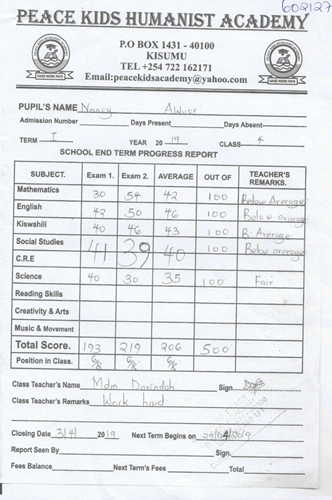 602127
PEACE KIDS HUMANIST ACADEMY
P.O BOX 1431 - 40100
KISUMU
TEL +254 722 162171
Email:peacekidsacademy@yahoo.com
PUPIL'S NAME Nancy Awuor
Admission Number Days Present Days Absent
TERM I YEAR 2019 CLASS 4
SCHOOL END TERM PROGRESS REPORT
SUBJECT. Exam 1. Exam 2. AVERAGE OUT OF TEACHER'S REMARKS.
Mathematics 30 54 42 100 Below Average
English 42 50 46 100 Below average
Kiswahili 40 46 43 100 B. Average
Social Studies 41 39 40 100 Below average
C.R.E
Science 40 30 35 100 Fair
Reading Skills
Creativity & Arts
Music & Movement
Total Score. 193 219 206 500
Position in Class. 6/8 6/8 6/8
Class Teacher's Name Mdm Sign.
Class Teacher's Remarks Work hard
Closing Date 3/4/2019 Next Term Begins on 29/04/2019
Report Seen By Sign.
Fees Balance Next Term's Fees Total